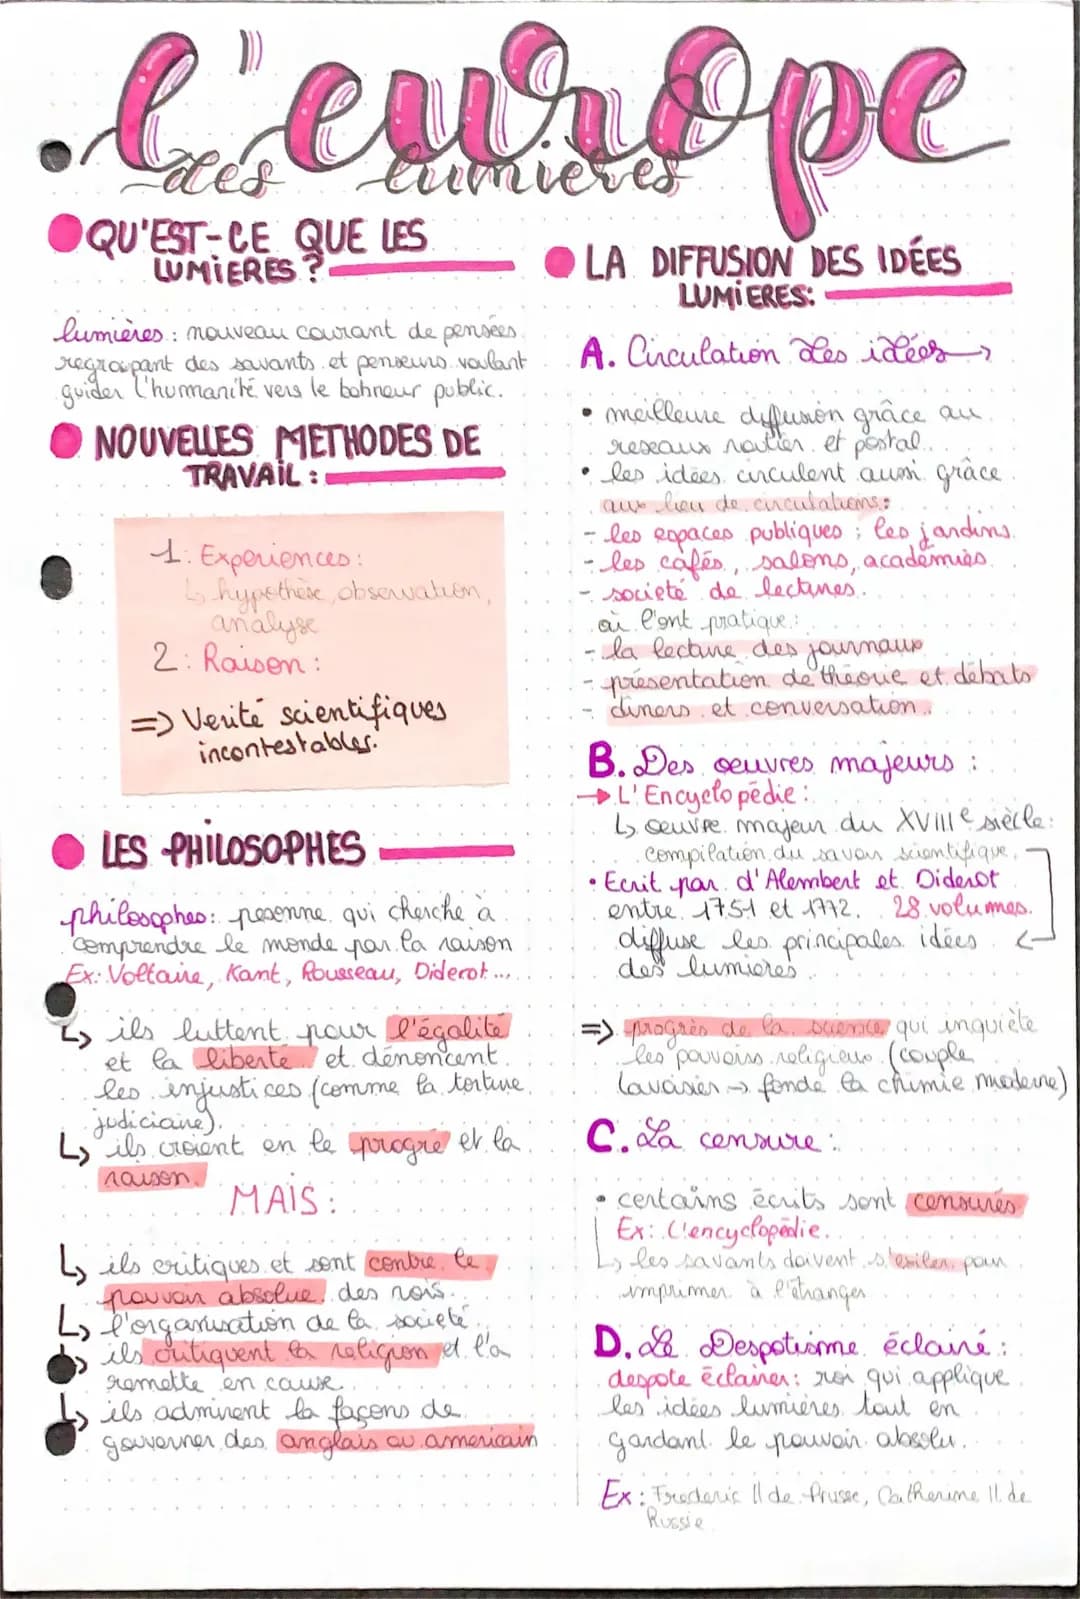 l'europe
des lumières
QU'EST-CE QUE LES
LUMIERES ?
lumières : nouveau courant de pensées
regroupant des savants et penseurs voulant
guider l'humanité vers le bohneur public.
NOUVELLES METHODES DE
TRAVAIL :
1: Experiences :
↳ hypothèse, observation,
analyse
2: Raison :
=> Verité scientifiques
incontestables.
LES PHILOSOPHES
philosophes : pesonne qui cherche à
comprendre le monde par la raison
Ex: Voltaire, Kant, Rousseau, Diderot...
↳ ils luttent pour l'égalité
et la liberté et dénoncent
les injustices (comme la torture
judiciaire).
↳ ils croient en le progré et la
raison.
MAIS :
↳ ils critiques et sont contre le
pouvoir absolue des rois.
↳ l'organisation de la société
↳ ils critiquent la religion et l'a
remette en cause.
↳ ils admirent la façons de
gouverner des anglais ou americain
LA DIFFUSION DES IDÉES
LUMIERES:
A. Circulation des idées →
• meilleure diffusion grâce au
reseaux routier et postal.
• les idées circulent aussi grâce
aux lieu de circulations :
- les espaces publiques ; les jardins.
- les cafés, salons, académies
- societé de lectures.
où l'ont pratique :
- la lecture des journaux
- présentation de théorie et débats
- diners et conversation.
B. Des oeuvres majeurs :
→ L'Encyclopédie :
↳ oeuvre majeur du XVIIIe siècle:
compilation du savoir scientifique.
• Ecrit par d'Alembert et Diderot
entre 1751 et 1772. 28 volumes.
diffuse les principales idées
des lumieres
=> progrès de la science qui inquiète
les pouvoirs religieux (couple
Lavoisier → fonde la chimie moderne)
C. La censure :
• certains écrits sont censurés
Ex: L'encyclopédie.
↳ les savants doivent s'exiler pour
imprimer à l'étranger
D. Le Despotisme éclairé :
despote éclairer : roi qui applique
les idées lumières tout en
gardant le pouvoir absolu.
Ex : Frederic II de Prusse, Catherine II de
Russie